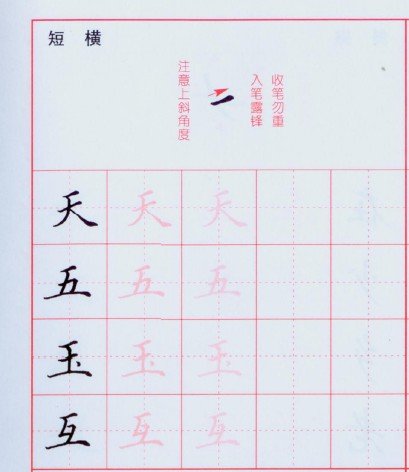 短 横
注意上斜角度
入笔露锋
收笔勿重
天 天 天
五 五 五
玉 玉 玉
互 互 互